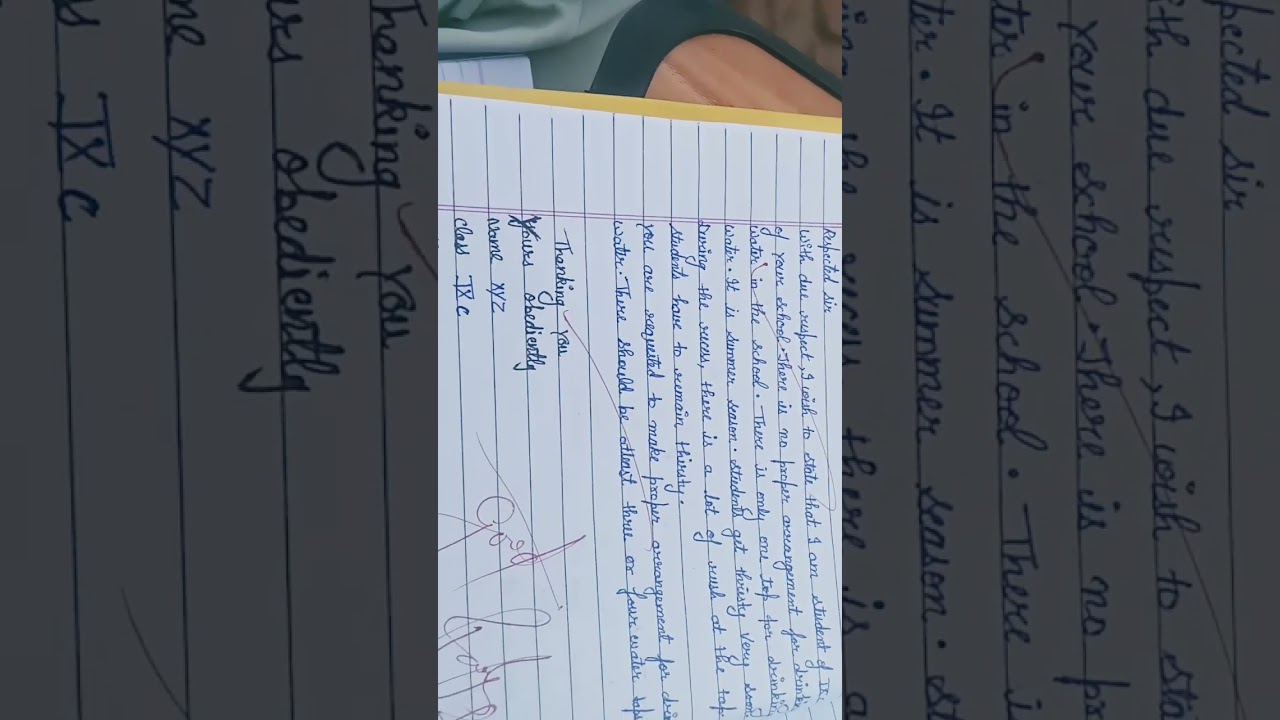 Respected sir
with due respect, I wish to state that I am student of IX
of your school. There is no proper arrangement for drinking
water in the school. There is only one tap for drinking
water. It is summer season. students get thristy very soon
during the recess, there is a lot of rush at the tap
students have to remain thirsty.
you are requested to make proper arrangement for
water. There should be atleast three or four water taps
Thanking you
Yours obediently
Name XYZ
class IX c
Good